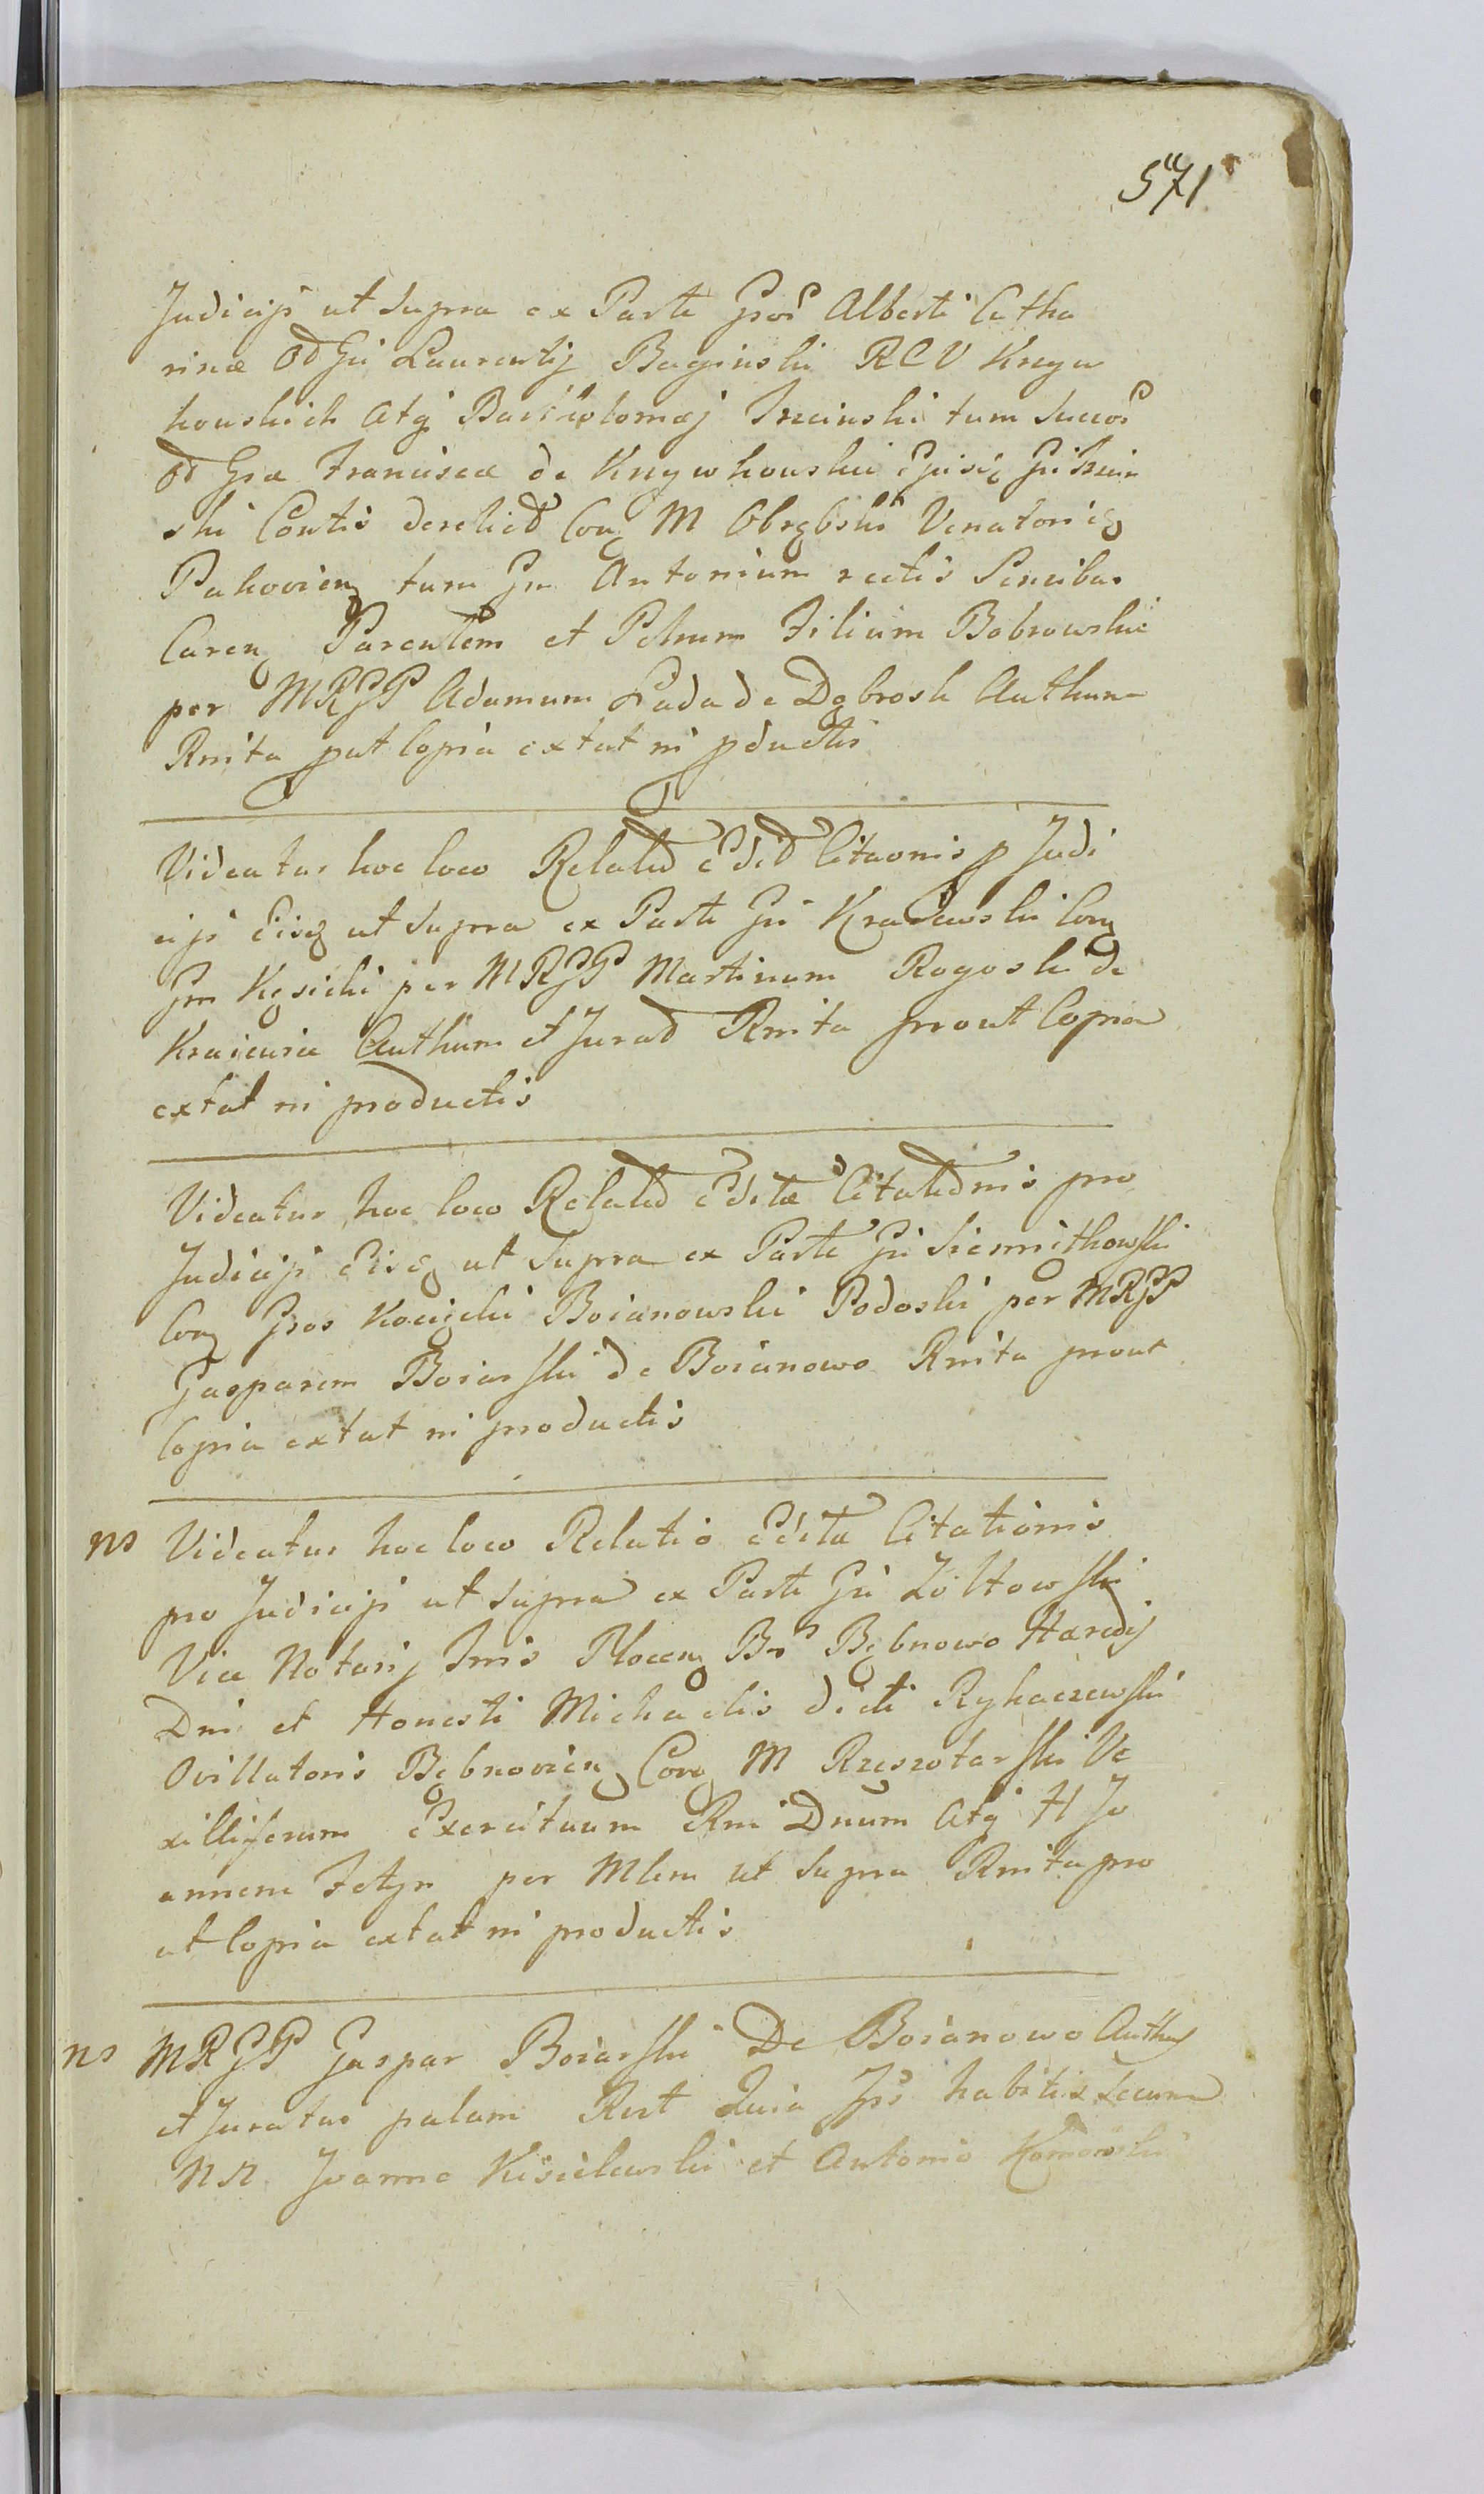 571
Judicijs ut Supra ex Parte Gros Alberti Catha
rinæ Gñi Laurentij Baginski RCV Knyw
kowskich Atq̃ Bartholomæj Trzcinski tum Succos
Francisca de Knywkowskie
ski Contis derelict Con M Obrębski Venatorię
Pakovien tum Gn Antonium rectis Sensibus
Caren Parentem et Petrum Filium Bobrowskie
per MRGP Adamum Łada de Dąbrosk Authum
Rnita put Copia extat in pductis
Videatur hoc loco Relatio Edit Citaonis p Judi
cijs Eisd ut Supra ex Parte Gñi Kraiewski Con
Gm Kęsicki per MRGP Martinum Rogoski de
Kraicuria Authum et Jurat Rnita prout Copia
extat in productis
Videatur hoc loco Relatio Editæ Citationis pro
Judicijs Eisd ut Supra ex Parte Gñi Siemiątkowski
Con Gros Kocięcki Boianowski Podoski per MRGP
Gasparem Boiarski de Boianowo Rnita prout
Copia extat in productis
ns Videatur hoc loco Relatio Edita Citationis
pro Judicijs ut Supra ex Parte Gñi Żółtowski
Vice Notarij Tris Plocen Bo Bębnowo Hæredis
Dni et Honesti Michaelis dicti Rykaczewski
Ovillatoris Bębnovien Con M Rzeszotarski Ve
xilliferum Exercituum Rni Dnum Atq̃ H Jo
annem Fetyn per Mlem ut Supra Rnita pro
ut Copia extat in productis
ns MRGP Gaspar Boiarski De Boianowo Authus
et Juratus palam Rect Quia Ips habitis Secum
NN. Joanne Kisielewski et Antonio Komorski